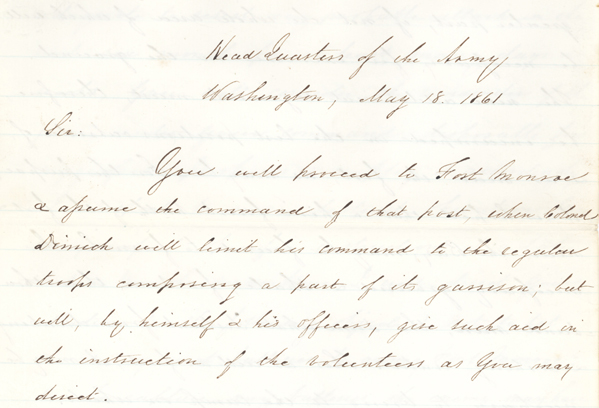 Head Quarters of the Army
Washington, May 18. 1861
Sir:
You will proceed to Fort Monroe
& assume the command of that post, when Colonel
Dimick will limit his command to the regular
troops composing a part of its garrison; but
will, by himself & his officers, give such aid in
the instruction of the volunteers as You may
direct.